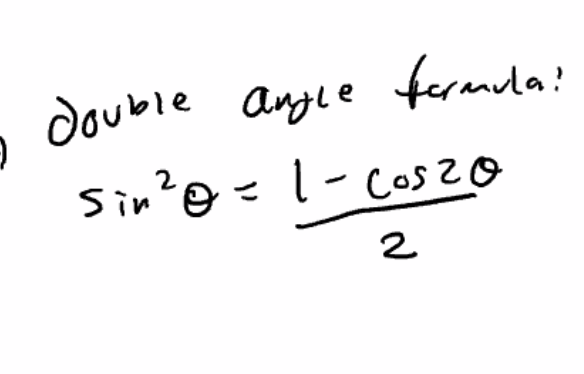 ) double angle formula:
sin²θ = (1 - cos2θ)/2